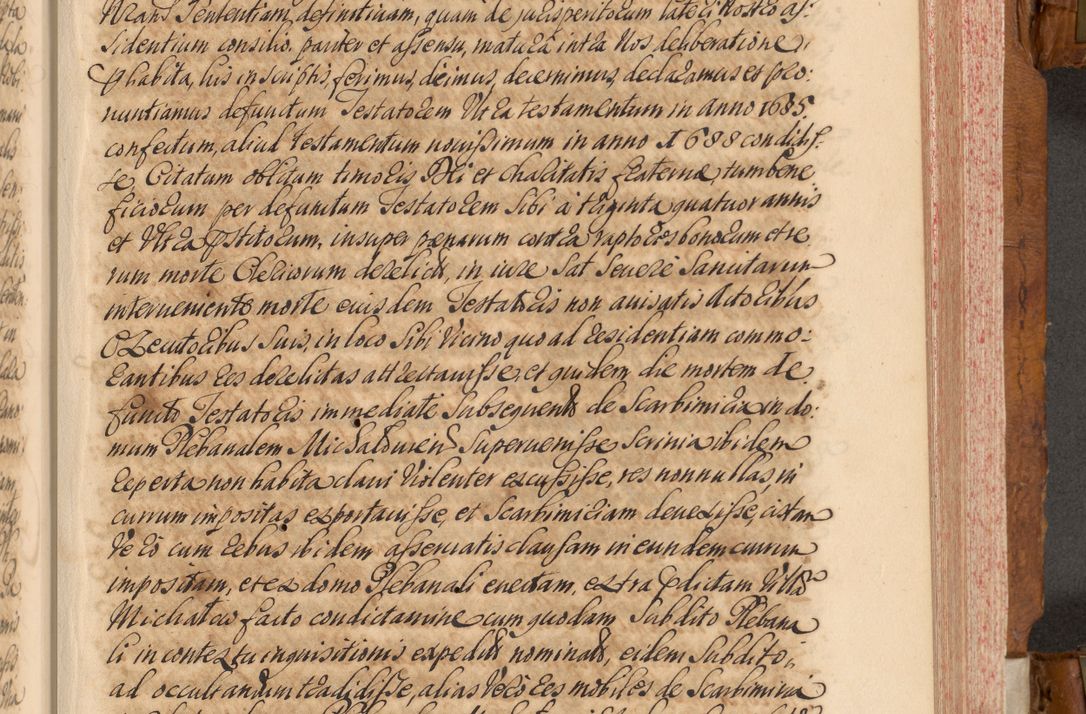 hanc sententiam definitivam, quam de jurisperitorum lateri nostro as-
sidentium consilio, pariter et assensu, matura intra nos deliberatione
phabita, his in scriptis ferimus, dicimus, decernimus, declaramus et pro:
nuntiamus defunctum Testatorem Ultra testamentum in anno 1685.
confectum, aliud Testamentum novissimum in anno 1688 condidis-
se, Citatum oblitum timoris Dei et charitatis fraternæ, tum bene
ficiorum per defunctum Testatorem sibi à triginta quatuor annis
et Ultra pstitorum, insuper pœnarum contra raptores bonorum et re
rum morte Clericorum derelictis, in iure sat severe sancitarum
interveniente morte eiusdem Testatoris non avisatis Actoribus
Executoribus suis, in loco sibi vicino quo ad residentiam commo:
rantibus res derelictas attrectavisse, et quidem die mortem de
functo Testatoris immediate subsequenti de Scarbimiria in do:
mum Plebanalem Michaloviens supervenisse scrinia ibidem
reperta non habita clavi violenter excussisse, res nonnullas, in
currum impositas exportavisse, et Scarbimiriam devexisse, cistam
vero cum rebus ibidem asservatis clausam in eundem currum
impositam, et ex domo Plebanali evectam, extra pdictam Villa
Michalow facto condictamine cum quodam subdito Plebana
li in contextu inquisitionis expedit nominato, eidem subdito
ad occultandum tradidisse, alias vero res mobiles de Scarbimiria